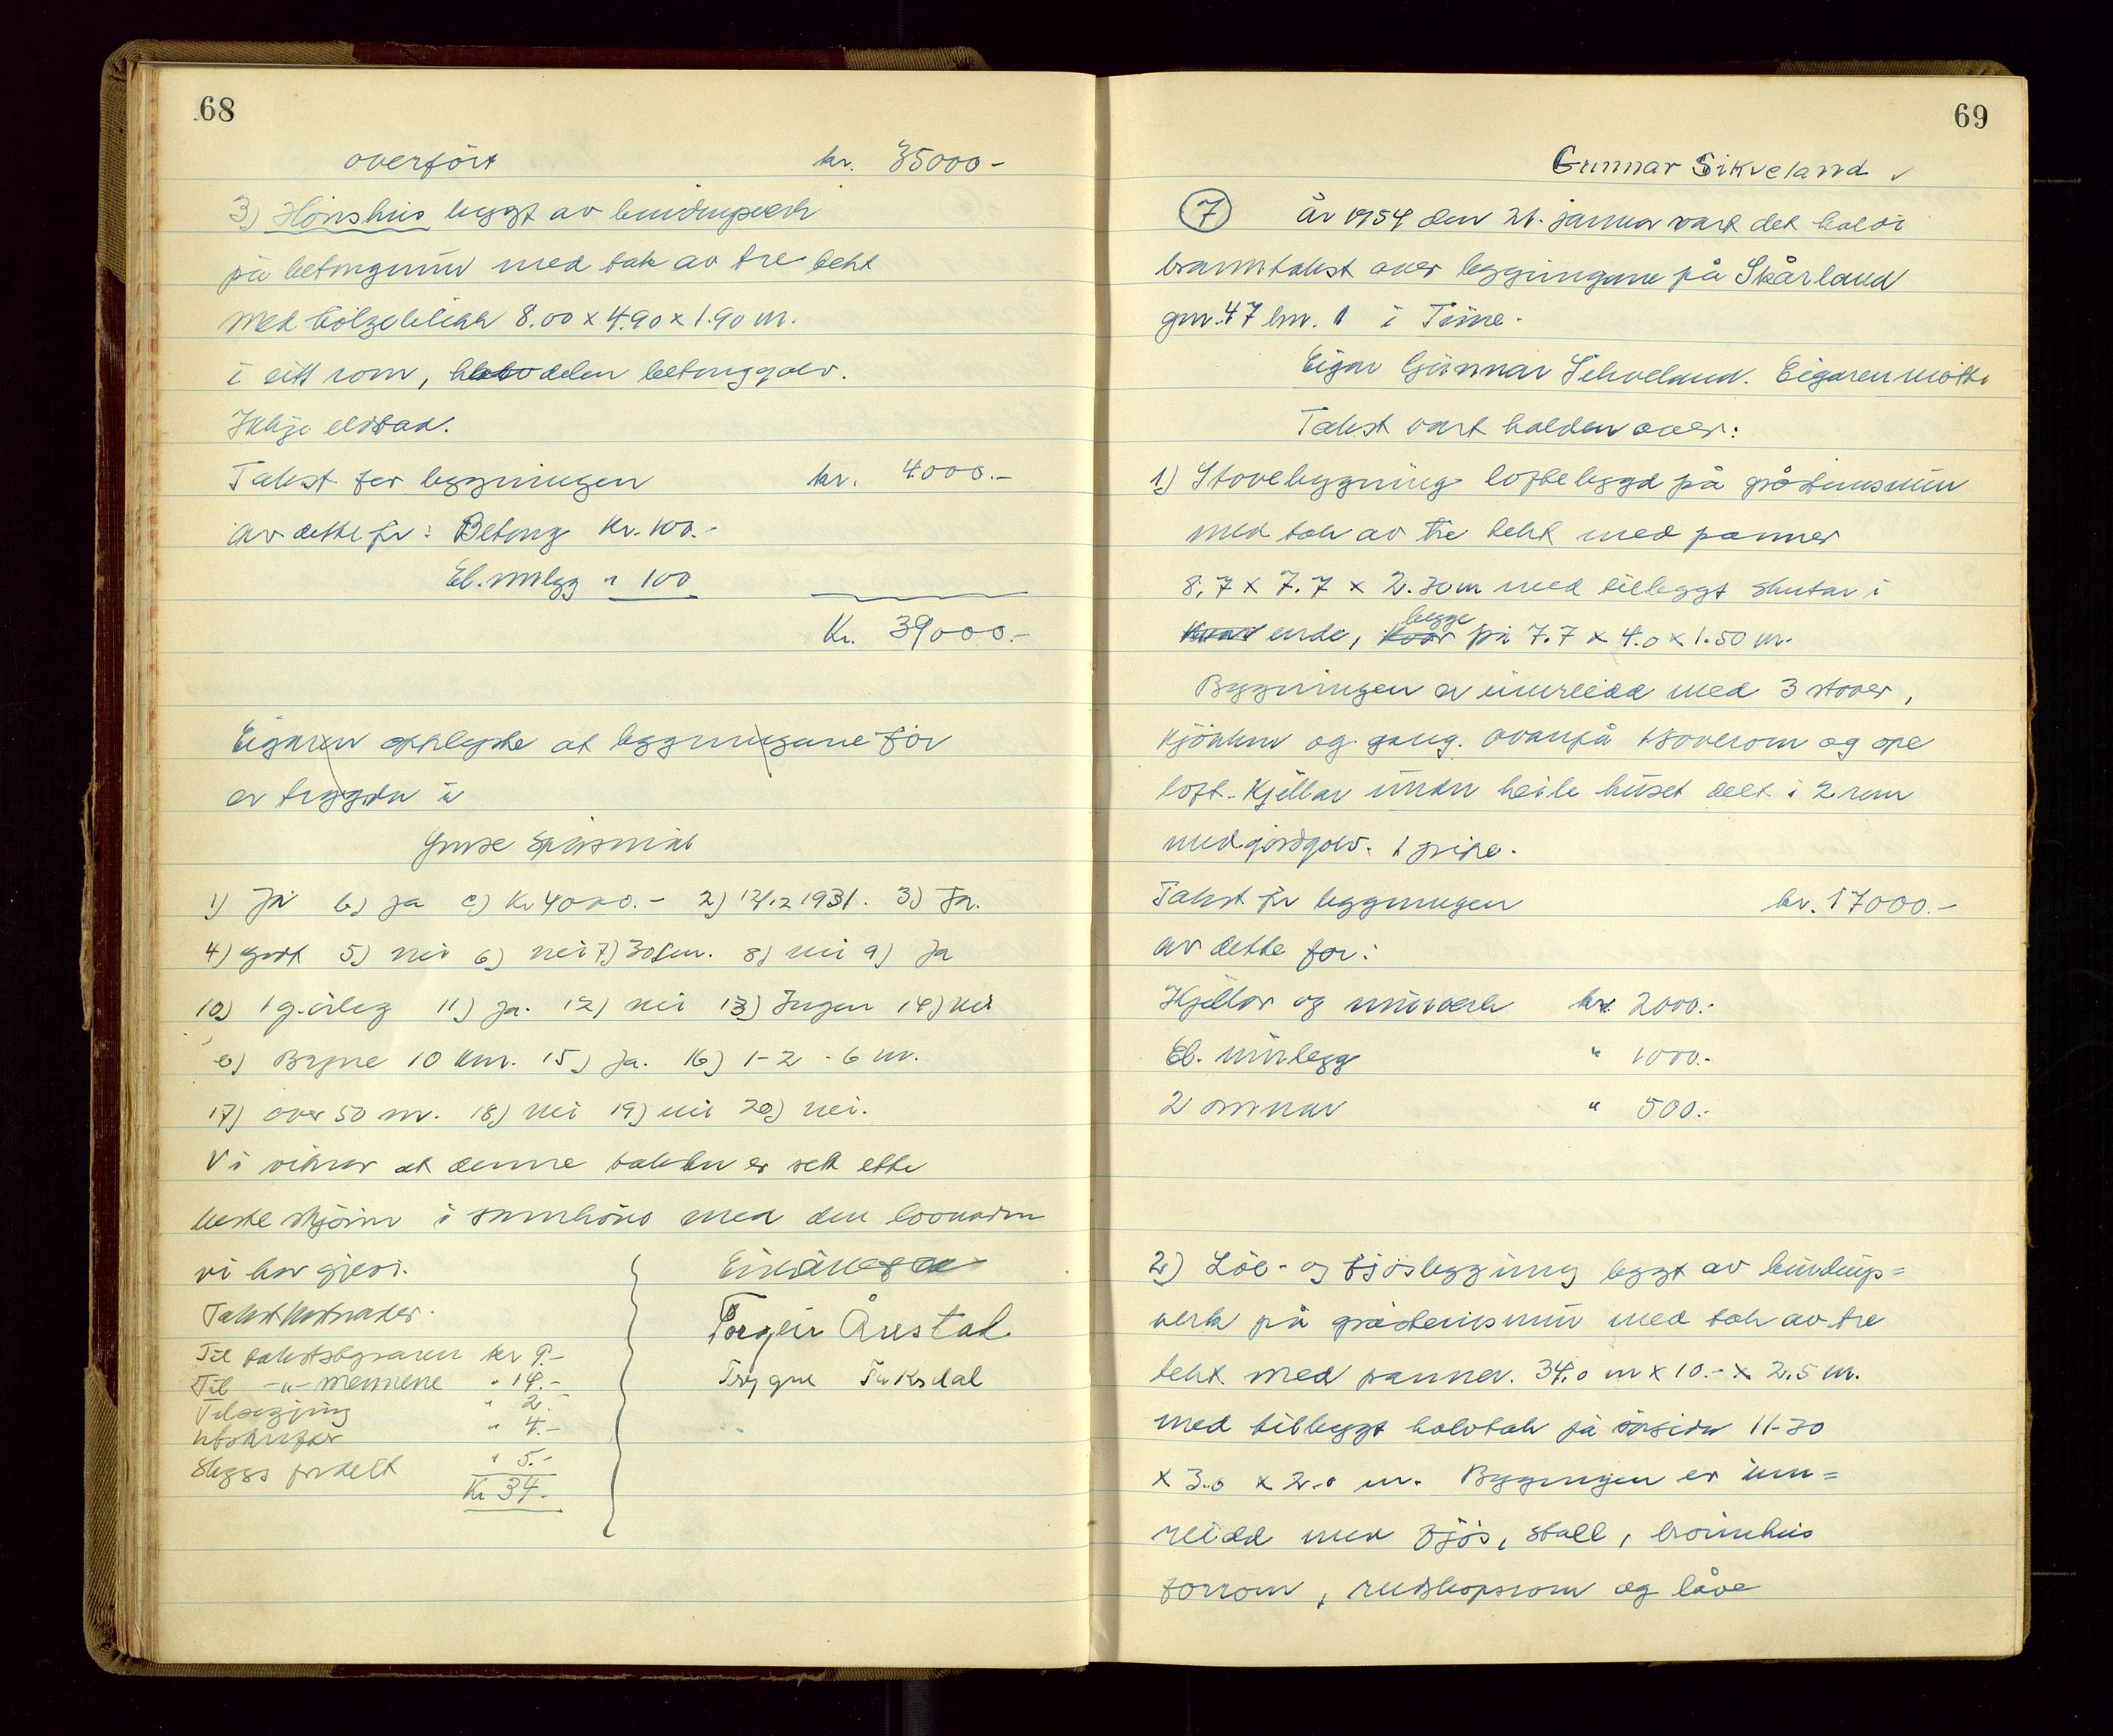 68
overført kr. 35000.-
3) Hönshus bygt av bindingsverk
på betongmur med tak av tre tekt
med bölgeblikk 8.00 x 4.90 x 1.90 m.
i eitt rom, halvdelen betonggolv.
Ikkje eldstad.
Takst for bygningen kr. 4000.-
av dette for: Betong Kr. 100.-
El. innlegg " 100
Kr. 39000.-
Eigaren opplyste at bygningane för
er trygda i
Ymse Spörsmål
1) Ja b) ja c) Kr 4000.- 2) 12/12 1931. 3) Ja.
4) godt 5) nei 6) nei 7) 30 cm. 8) nei 9) Ja
10) 1 g. årleg 11) ja. 12) nei 13) Ingen 14) nei
e) Bryne 10 km. 15) Ja. 16) 1-2 - 6 m.
17) over 50 m. 18) nei 19) nei 20) nei.
Vi vitnar at denne taksten er sett etter
beste skjönn i samhöve med den lovnaden
vi har gjevi.
Takstkostnader.
Til takststyraren kr 9.-
Til -"- mennene " 14.-
Tilsegjing " 2.-
Utskrifter " 4.-
Skyss fordelt " 5.-
Kr 34.-
Torgeir Årestad
Trygve Taksdal
69
Gunnar Sikveland
7 År 1954 den 21. januar vart det haldi
branntakst over bygningane på Skårland
gnr. 47 bnr. 1 i Time.
Eigar Gunnar Sikveland. Eigaren møtte
Takst vart halden over:
1) Stovebygning loftebygd på gråsteinsmur
med tak av tre tekt med panner
8.7 x 7.7 x 2.30 m med tilbyggt skutar i
kvar ende, kvar begge på 7.7 x 4.0 x 1.50 m.
Bygningen er innreidd med 3 stover,
kjökken og gang. ovanpå 1 soverom og ope
loft. Kjellar under heile huset delt i 2 rom
med jordgolv. 1 pipe.
Takst for bygningen kr. 17000.-
av dette for:
Kjellar og murverk kr. 2000.-
El. innlegg " 1000.-
2 omnar " 500.-
2) Löe- og fjösbygging bygt av bindings=
verk på gråsteinsmur med tak av tre
tekt med panner. 34.0 m x 10.- x 2.5 m.
med tilbyggt halvtak på sørsida 11.30
x 3.0 x 2.0 m. Bygningen er inn=
reidd med fjös, stall, brönnhus
forrom, reidskapsrom og låve